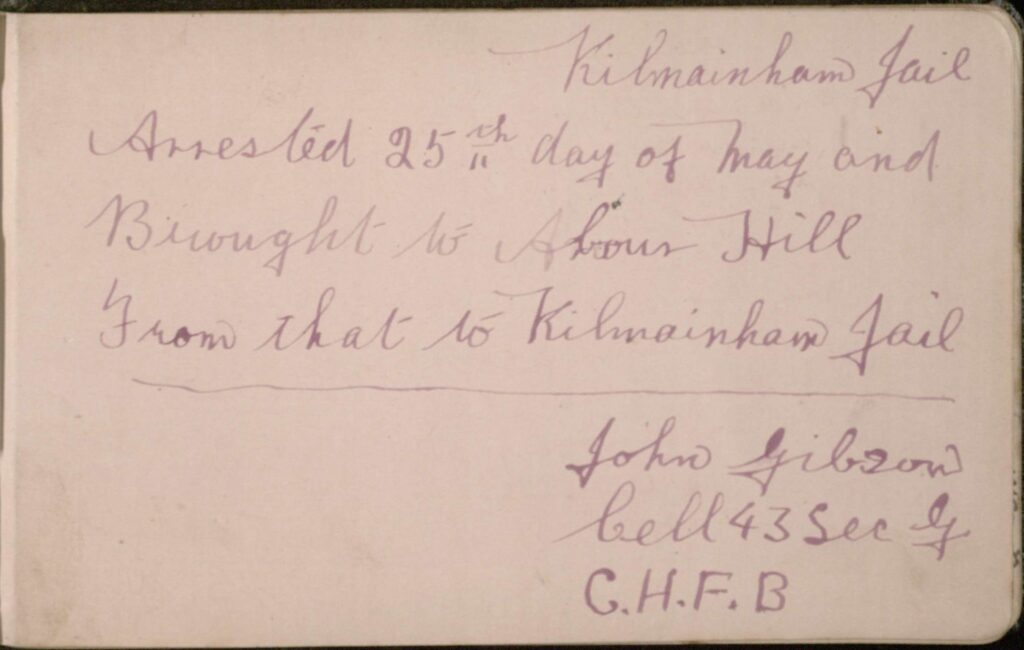 Kilmainham Jail
Arrested 25th day of May and
Brought to Abour Hill
From that to Kilmainham Jail
John Gibson
Cell 43 Sec G
C.H.F.B